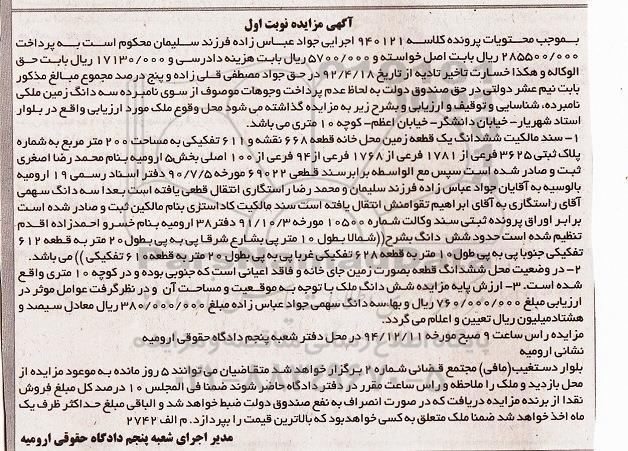 آگهی مزایده نوبت اول
بموجب محتویات پرونده کلاسه ۹۴۰۱۲۱ اجرایی جواد عباس زاده فرزند سلیمان محکوم است به پرداخت
۲۸۵۵۰۰/۰۰۰ ریال بابت اصل خواسته و ۵۷۰۰/۰۰۰ ریال بابت هزینه دادرسی و ۱۷۱۳۰/۰۰۰ ریال بابت حق
الوکاله و هکذا خسارت تاخیر تادیه از تاریخ ۹۲/۴/۱۸ در حق جواد مصطفی قلی زاده و پنج درصد مجموع مبالغ مذکور
بابت نیم عشر دولتی در حق صندوق دولت به لحاظ عدم پرداخت وجوهات موصوف از سوی نامبرده سه دانگ زمین ملکی
نامبرده، شناسایی و توقیف و ارزیابی و بشرح زیر به مزایده گذاشته می شود محل وقوع ملک مورد ارزیابی واقع در بلوار
استاد شهریار- خیابان دانشگر- خیابان اعظم- کوچه ۱۰ متری می باشد.
۱- سند مالکیت ششدانگ یک قطعه زمین محل خانه قطعه ۶۶۸ نقشه و ۶۱۱ تفکیکی به مساحت ۲۰۰ متر مربع به شماره
پلاک ثبتی ۳۶۲۵ فرعی از ۱۷۸۱ فرعی از ۱۷۶۸ فرعی از ۹۴ فرعی از ۱۰۰ اصلی بخش ۵ ارومیه بنام محمد رضا اصغری
ثبت و صادر شده است سپس مع الواسطه برابر سند قطعی ۶۹۰۲۲ مورخه ۹۰/۷/۵ دفتر اسناد رسمی ۱۹ ارومیه
بالوسیه به آقایان جواد عباس زاده فرزند سلیمان و محمد رضا راستگاری انتقال قطعی یافته است بعدا سه دانگ سهمی
آقای راستگاری به آقای ابراهیم تقوامنش انتقال یافته است سند مالکیت کاداستری بنام مالکین ثبت و صادر شده است
برابر اوراق پرونده ثبتی سند وکالت شماره ۱۰۵۰۰ مورخه ۹۱/۱۰/۳ دفتر ۳۸ ارومیه بنام خسرو احمدزاده اقدم
تنظیم شده است حدود شش دانگ بشرح((شمالا بطول ۱۰ متر پی بشارع شرقا پی به پی بطول ۲۰ متر به قطعه ۶۱۲
تفکیکی جنوبا پی به پی طول ۱۰ متر به قطعه ۶۲۸ تفکیکی غربا پی به پی بطول ۲۰ متر به قطعه ۶۱۰ تفکیکی )) می باشد.
۲- در وضعیت محل ششدانگ قطعه بصورت زمین جای خانه و فاقد اعیانی است که جنوبی بوده و در کوچه ۱۰ متری واقع
شده است. ۳- ارزش پایه مزایده شش دانگ ملک با توجه به موقعیت و مساحت آن و در نظر گرفت عوامل موثر در
ارزیابی مبلغ ۷۶۰/۰۰۰/۰۰۰ ریال و بهاء سه دانگ سهمی جواد عباس زاده مبلغ ۳۸۰/۰۰۰/۰۰۰ ریال معادل سیصد و
هشتاد میلیون ریال تعیین و اعلام می گردد.
مزایده راس ساعت ۹ صبح مورخه ۹۴/۱۲/۱۱ در محل دفتر شعبه پنجم دادگاه حقوقی ارومیه
نشانی ارومیه
بلوار دستغیب(مافی) مجتمع قضائی شماره ۲ برگزار خواهد شد متقاضیان می توانند ۵ روز مانده به موعود مزایده از
محل بازدید و ملک را ملاحظه و راس ساعت مقرر در دفتر دادگاه حاضر شوند ضمنا فی المجلس ۱۰ درصد کل مبلغ فروش
نقدا از برنده مزایده دریافت که در صورت انصراف به نفع صندوق دولت ضبط خواهد شد و الباقی مبلغ حداکثر ظرف یک
ماه اخذ خواهد شد ضمنا ملک متعلق به کسی خواهد بود که بالاترین قیمت را بپردازد. م الف ۲۷۴۲
مدیر اجرای شعبه پنجم دادگاه حقوقی ارومیه